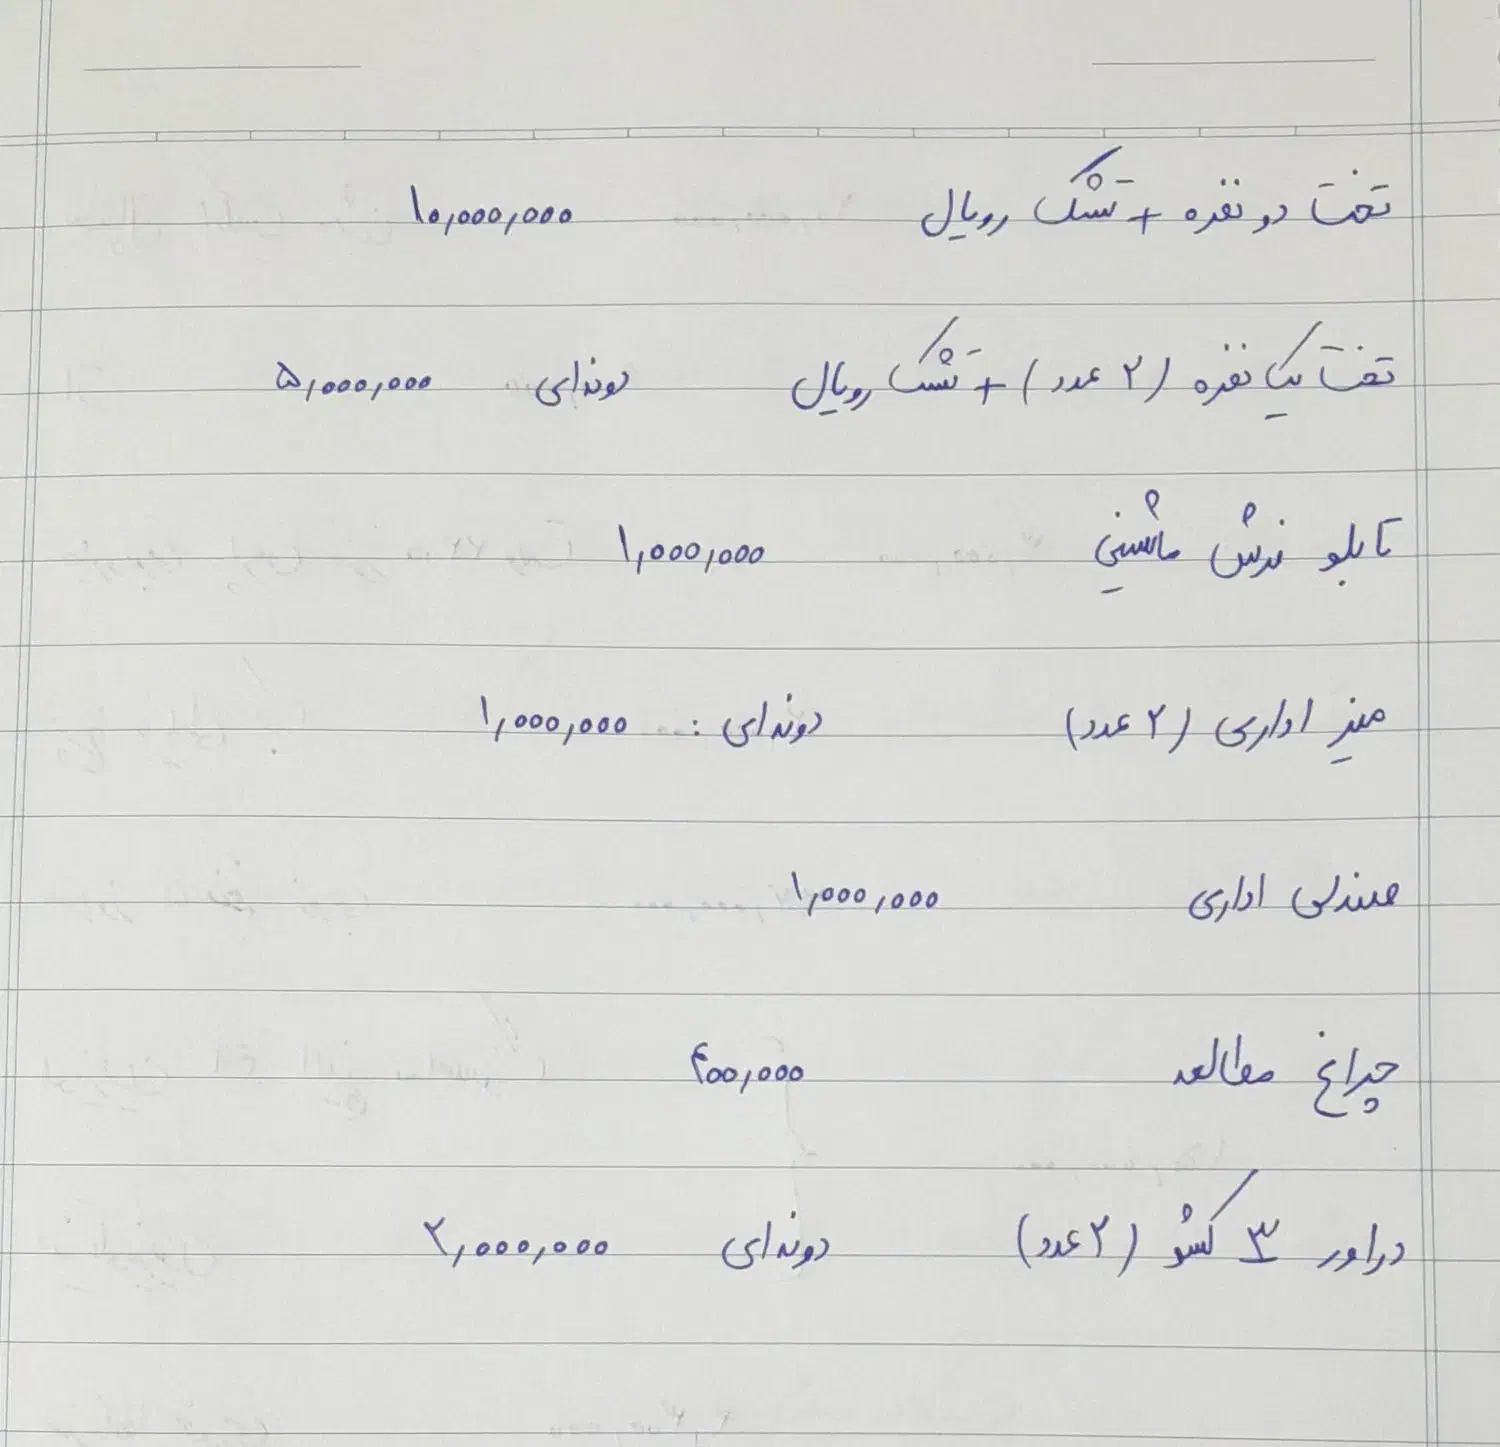 تخت دو نفره + تشک رویال ۱۰,۰۰۰,۰۰۰
تخت یک نفره (۲ عدد) + تشک رویال دونه‌ای ۵,۰۰۰,۰۰۰
تابلو فرش ماشینی ۱,۰۰۰,۰۰۰
میز اداری (۲ عدد) دونه‌ای : ۱,۰۰۰,۰۰۰
صندلی اداری ۱,۰۰۰,۰۰۰
چراغ مطالعه ۴۰۰,۰۰۰
دراور ۳ کشو (۲ عدد) دونه‌ای ۲,۰۰۰,۰۰۰